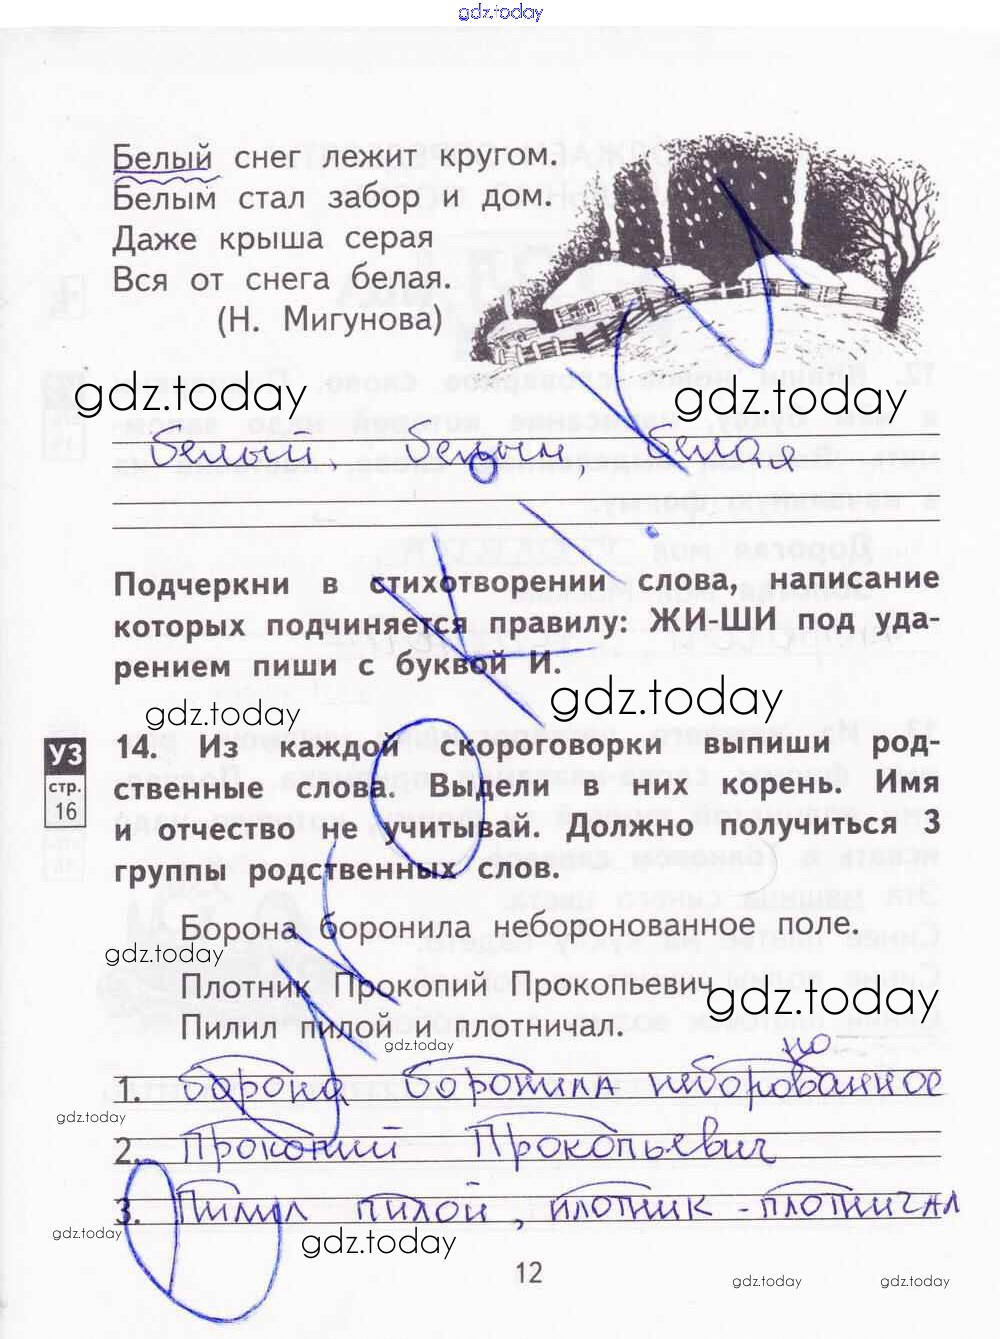 gdz.today
Белый снег лежит кругом.
Белым стал забор и дом.
Даже крыша серая
Вся от снега белая.
(Н. Мигунова)
gdz.today gdz.today
белый, белым, белая
Подчеркни в стихотворении слова, написание
которых подчиняется правилу: ЖИ-ШИ под уда-
рением пиши с буквой И.
gdz.today gdz.today
УЗ
стр.
16
14. Из каждой скороговорки выпиши род-
ственные слова. Выдели в них корень. Имя
и отчество не учитывай. Должно получиться 3
группы родственных слов.
Борона боронила неборонованное поле.
gdz.today
Плотник Прокопий Прокопьевич
gdz.today
Пилил пилой и плотничал.
gdz.today
но
1. борона боронила неборованное
gdz.today
2. Прокопий Прокопьевич
3. Пилил пилой, плотник - плотничал
gdz.today gdz.today
12
gdz.today gdz.today